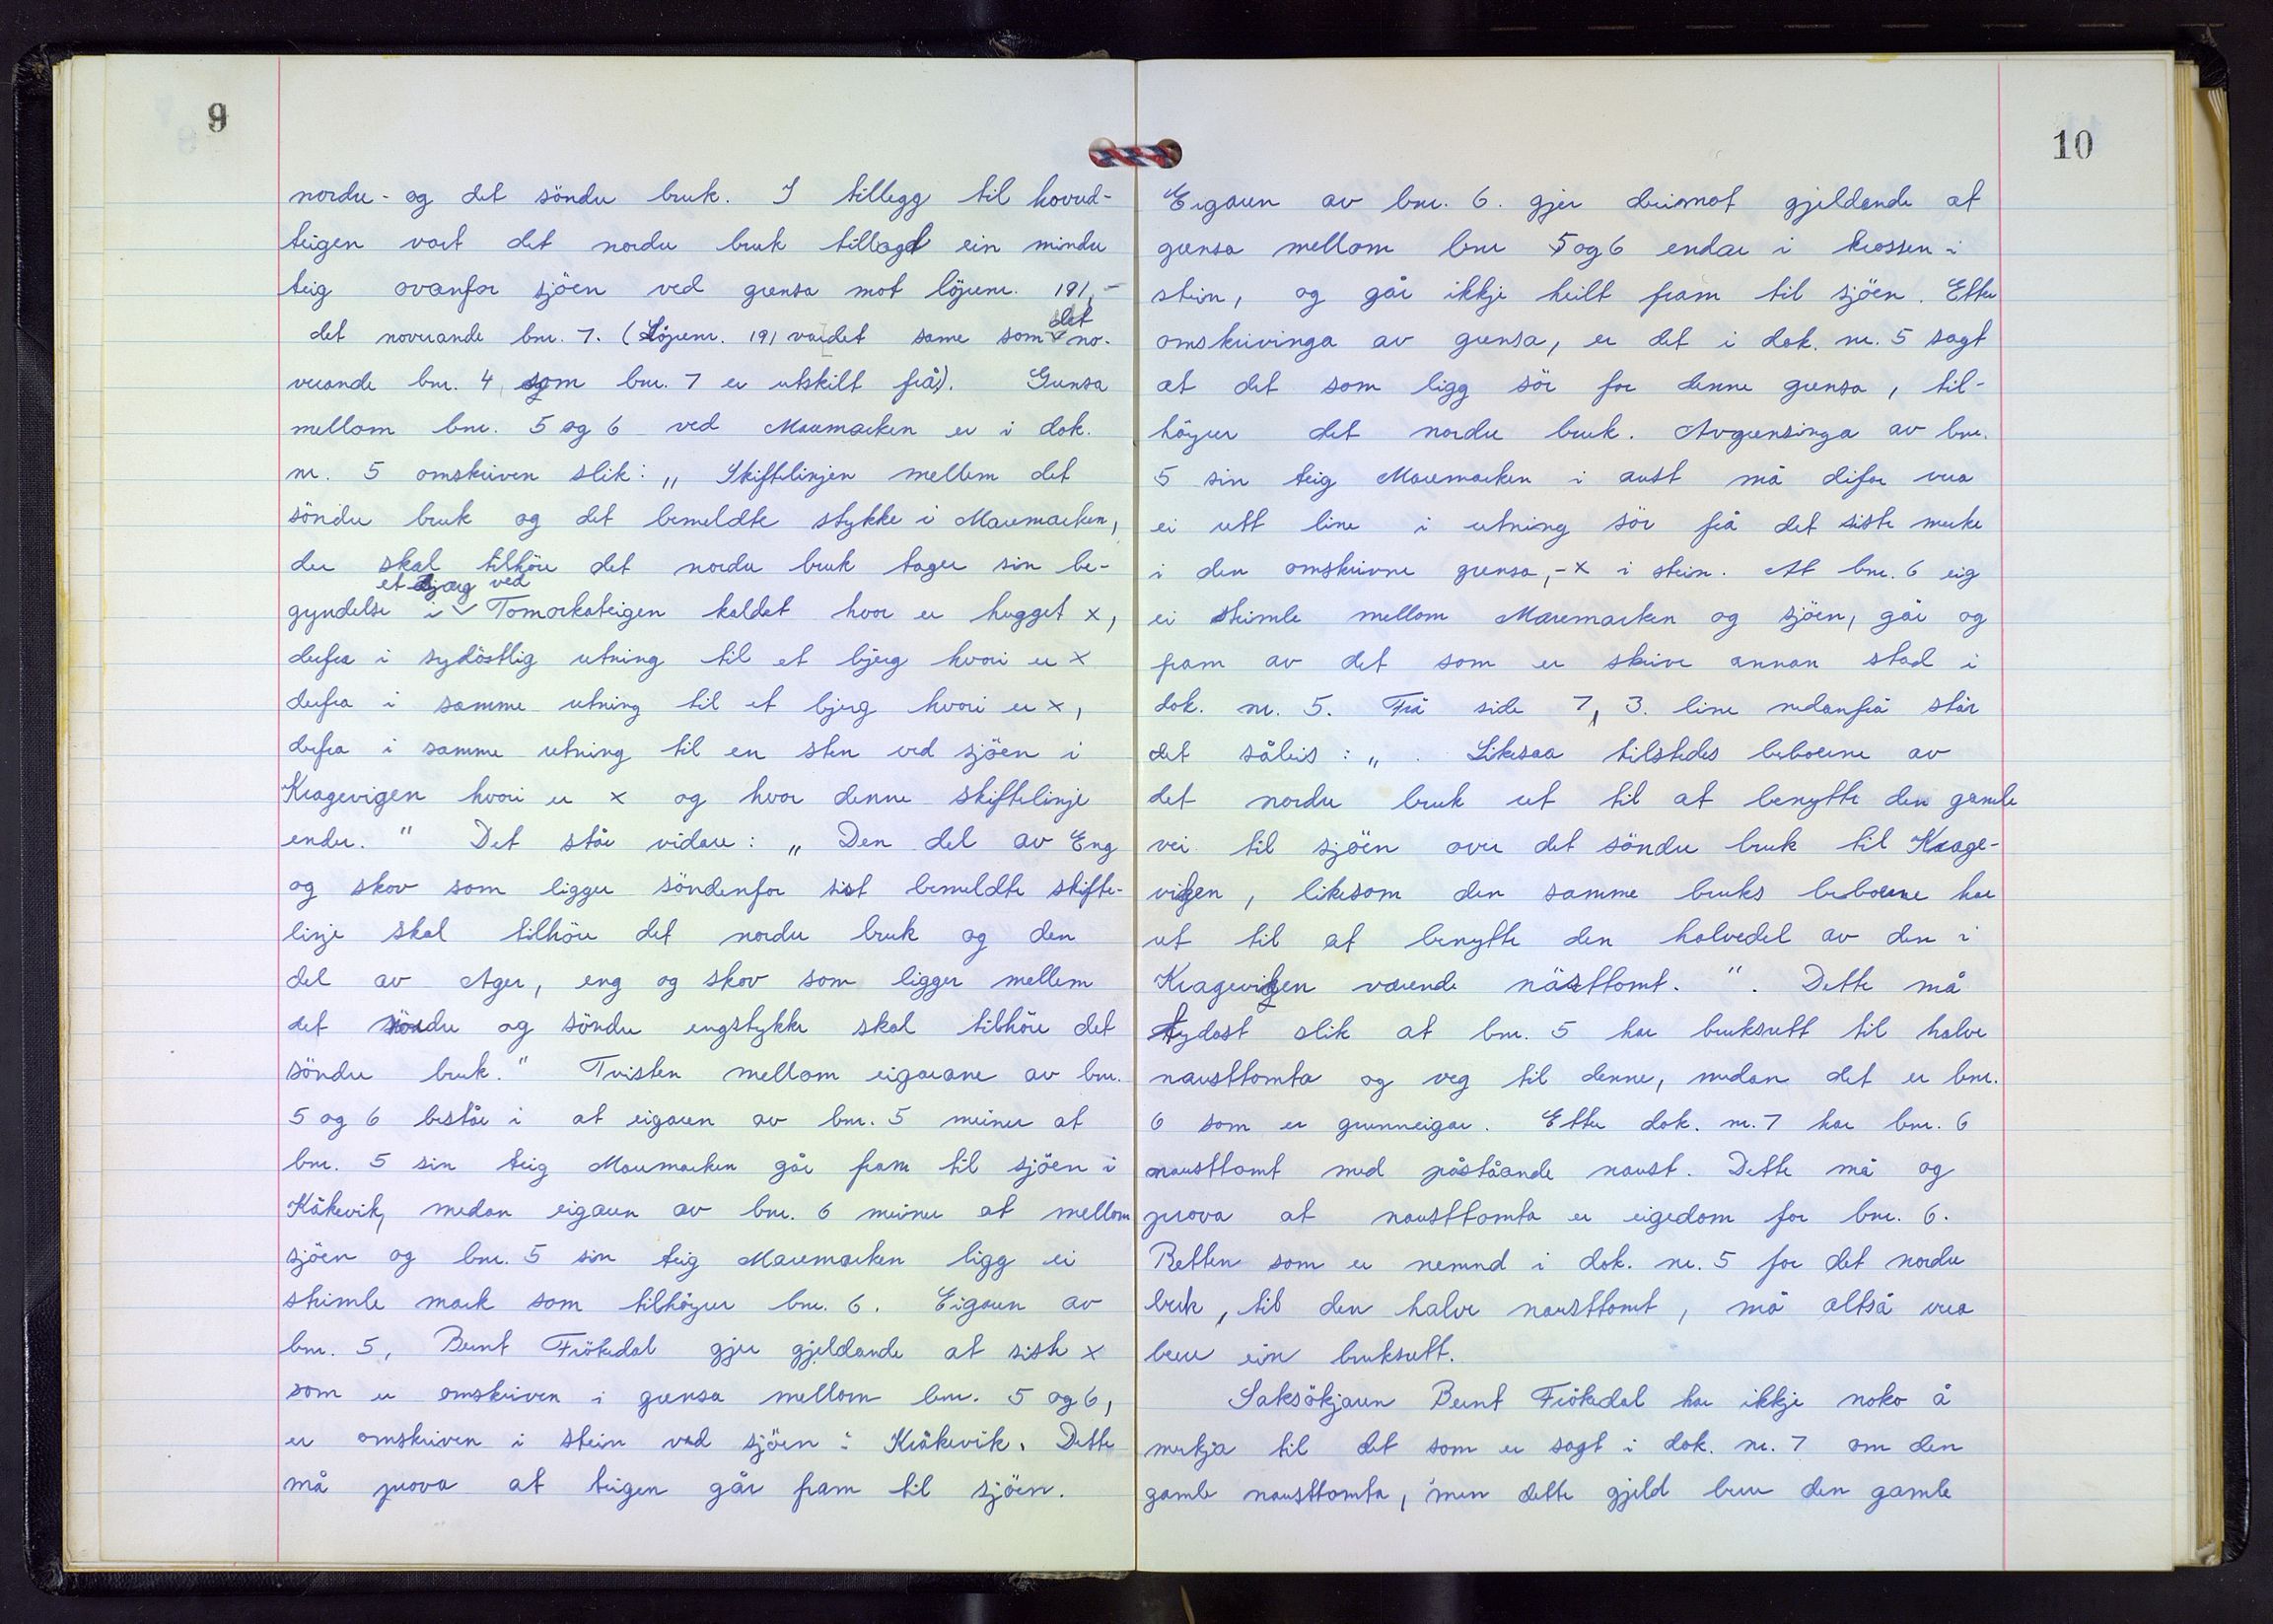 9
nordre- og det söndre bruk. I tillegg til hovud-
teigen vart det nordre bruk tillagd ein mindre
teig ovanfor sjöen ved grensa mot löpenr. 191, -
det noverande bnr. 7. (Löpenr. 191 var det same som det no-
verande bnr. 4 som bnr. 7 er utskilt frå). Grensa
mellom bnr. 5 og 6 ved Maremarken er i dok.
nr. 5 omskriven slik: „ Skiftelinjen mellem det
söndre bruk og det bemeldte stykke i Maremarken,
der skal tilhöre det nordre bruk tager sin be-
gyndelse i et bjærg ved Tomarkateigen kaldet hvor er hugget x,
derfra i sydöstlig retning til et bjerg hvori er x
derfra i samme retning til et bjerg hvori er x,
derfra i samme retning til en sten ved sjöen i
Kragevigen hvori er x og hvor denne skiftelinje
ender. " Det står vidare: „ Den del av Eng
og skov som ligger söndenfor sist bemeldte skifte-
linje skal tilhöre det nordre bruk og den
del av Ager, eng og skov som ligger mellem
det nordre og söndre engstykke skal tilhöre det
söndre bruk." Tvisten mellom eigarane av bnr.
5 og 6 består i at eigaren av bnr. 5 meiner at
bnr. 5 sin teig Maremarken går fram til sjöen i
Kråkevik, medan eigaren av bnr. 6 meiner at mellom
sjöen og bnr. 5 sin teig Maremarken ligg ei
strimle mark som tilhöyrer bnr. 6. Eigaren av
bnr. 5, Bernt Frökedal gjer gjeldande at siste x
som er omskriven i grensa mellom bnr. 5 og 6,
er omskriven i stein ved sjöen i Kråkevik. Dette
må prova at teigen går fram til sjöen.
10
Eigaren av bnr. 6. gjer derimot gjeldande at
grensa mellom bnr 5 og 6 endar i krossen i
stein, og går ikkje heilt fram til sjöen. Etter
omskrivinga av grensa, er det i dok. nr. 5 sagt
at det som ligg sör for denne grensa, til-
höyrer det nordre bruk. Avgrensinga av bnr.
5 sin teig Maremarken i aust må difor vera
ei rett line i retning sör frå det siste merke
i den omskrivne grensa, - x i stein. At bnr. 6 eig
ei strimle mellom Maremarken og sjöen, går og
fram av det som er skrive annan stad i
dok. nr. 5. Frå side 7, 3. line nedanfrå står
det såleis: „ . Likesaa tilstedes beboerne av
det nordre bruk ret til at benytte den gamle
vei til sjöen over det söndre bruk til Krage-
vigen, likesom den samme bruks beboerne har
ret til at benytte den halvedel av den i
Kragevigen værende nästtomt. ". Dette må
tydast slik at bnr. 5 har bruksrett til halve
nausttomta og veg til denne, medan det er bnr.
6 som er grunneigar. Etter dok. nr. 7 har bnr. 6
nausttomt med påståande naust. Dette må og
prova at nausttomta er eigedom for bnr. 6.
Retten som er nemnd i dok. nr. 5 for det nordre
bruk, til den halve nausttomt, må altså vera
berre ein bruksrett.
Saksökjaren Bernt Frökedal har ikkje noko å
merkja til det som er sagt i dok. nr. 7 om den
gamle nausttomta, men dette gjeld berre den gamle